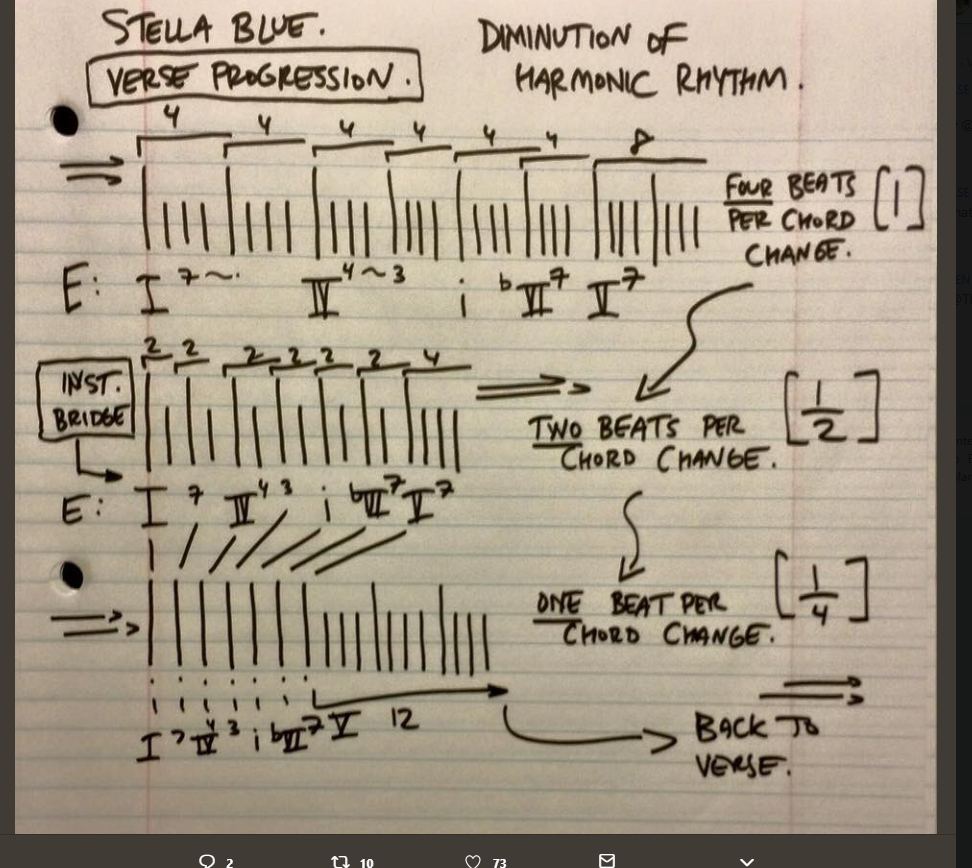 STELLA BLUE.
VERSE PROGRESSION.
DIMINUTION OF
HARMONIC RHYTHM.
4 4 4 4 4 4 8
FOUR BEATS
PER CHORD
CHANGE.
[1]
E: I 7~. IV 4~3 i bVII7 V7
2 2 2 2 2 2 4
INST.
BRIDGE
TWO BEATS PER
CHORD CHANGE.
[1/2]
E: I 7 IV 4 3 i bVII7 V7
ONE BEAT PER
CHORD CHANGE.
[1/4]
I 7 IV4 3 i bVII7 V 12
BACK TO
VERSE.
2 10 73